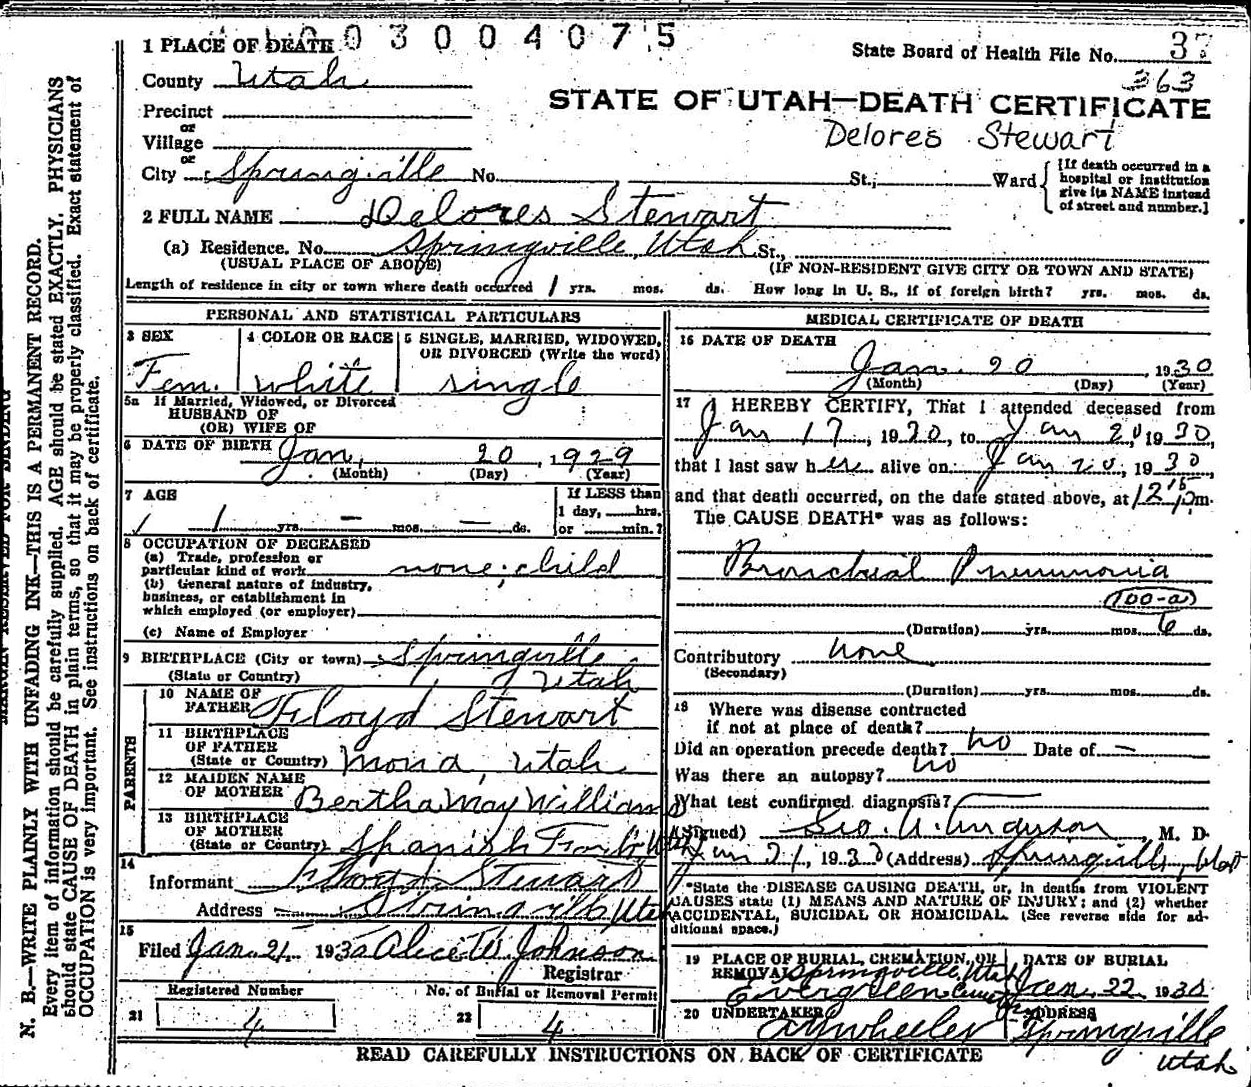 003004075
1 PLACE OF DEATH
State Board of Health File No. 37
County Utah
363
STATE OF UTAH—DEATH CERTIFICATE
Precinct
or
Village
Delores Stewart
or
City Springville No. St.; Ward
[If death occurred in a
hospital or institution
give its NAME instead
of street and number.]
2 FULL NAME Delores Stewart
(a) Residence. No. Springville, Utah St.,
(USUAL PLACE OF ABODE) (IF NON-RESIDENT GIVE CITY OR TOWN AND STATE)
Length of residence in city or town where death occurred 1 yrs. mos. ds. How long in U. S., if of foreign birth? yrs. mos. ds.
PERSONAL AND STATISTICAL PARTICULARS
3 SEX
Fem.
4 COLOR OR RACE
white
5 SINGLE, MARRIED, WIDOWED,
OR DIVORCED (Write the word)
single
5a If Married, Widowed, or Divorced
HUSBAND OF
(OR) WIFE OF
6 DATE OF BIRTH Jan. 20, 1929
(Month) (Day) (Year)
7 AGE
1 yrs. — mos. — ds.
If LESS than
1 day, hrs.
or min.?
8 OCCUPATION OF DECEASED
(a) Trade, profession or
particular kind of work none; child
(b) General nature of industry,
business, or establishment in
which employed (or employer)
(c) Name of Employer
9 BIRTHPLACE (City or town) Springville
(State or Country) Utah
PARENTS
10 NAME OF
FATHER Floyd Stewart
11 BIRTHPLACE
OF FATHER
(State or Country) Mona, Utah
12 MAIDEN NAME
OF MOTHER Bertha May Williams
13 BIRTHPLACE
OF MOTHER
(State or Country) Spanish Fork Utah
14
Informant Floyd Stewart
Address Springville, Utah
15
Filed Jan. 21 1930 Alice W Johnson
Registrar
Registered Number
21 4
No. of Burial or Removal Permit
22 4
MEDICAL CERTIFICATE OF DEATH
16 DATE OF DEATH
Jan. 20, 1930
(Month) (Day) (Year)
17 I HEREBY CERTIFY, That I attended deceased from
Jan 17, 1930, to Jan 20, 1930,
that I last saw her alive on Jan 20, 1930
and that death occurred, on the date stated above, at 12 15 pm.
The CAUSE DEATH* was as follows:
Bronchial Pneumonia
100-a
(Duration) yrs. mos. 6 ds.
Contributory none
(Secondary)
(Duration) yrs. mos. ds.
18 Where was disease contracted
if not at place of death?
Did an operation precede death? no Date of —
Was there an autopsy? no
What test confirmed diagnosis?
(Signed) Geo. A. Anderson, M. D.
Jan 21, 1930 (Address) Springville, Utah
*State the DISEASE CAUSING DEATH, or, in deaths from VIOLENT
CAUSES state (1) MEANS AND NATURE OF INJURY; and (2) whether
ACCIDENTAL, SUICIDAL OR HOMICIDAL. (See reverse side for ad-
ditional space.)
19 PLACE OF BURIAL, CREMATION, OR
REMOVAL Springville, Utah
Evergreen
DATE OF BURIAL
Jan. 22 1930
20 UNDERTAKER
Wheeler
ADDRESS
Springville
Utah
READ CAREFULLY INSTRUCTIONS ON BACK OF CERTIFICATE
MARGIN RESERVED FOR BINDING
N. B.—WRITE PLAINLY WITH UNFADING INK—THIS IS A PERMANENT RECORD.
Every item of information should be carefully supplied. AGE should be stated EXACTLY. PHYSICIANS
should state CAUSE OF DEATH in plain terms, so that it may be properly classified. Exact statement of
OCCUPATION is very important. See instructions on back of certificate.